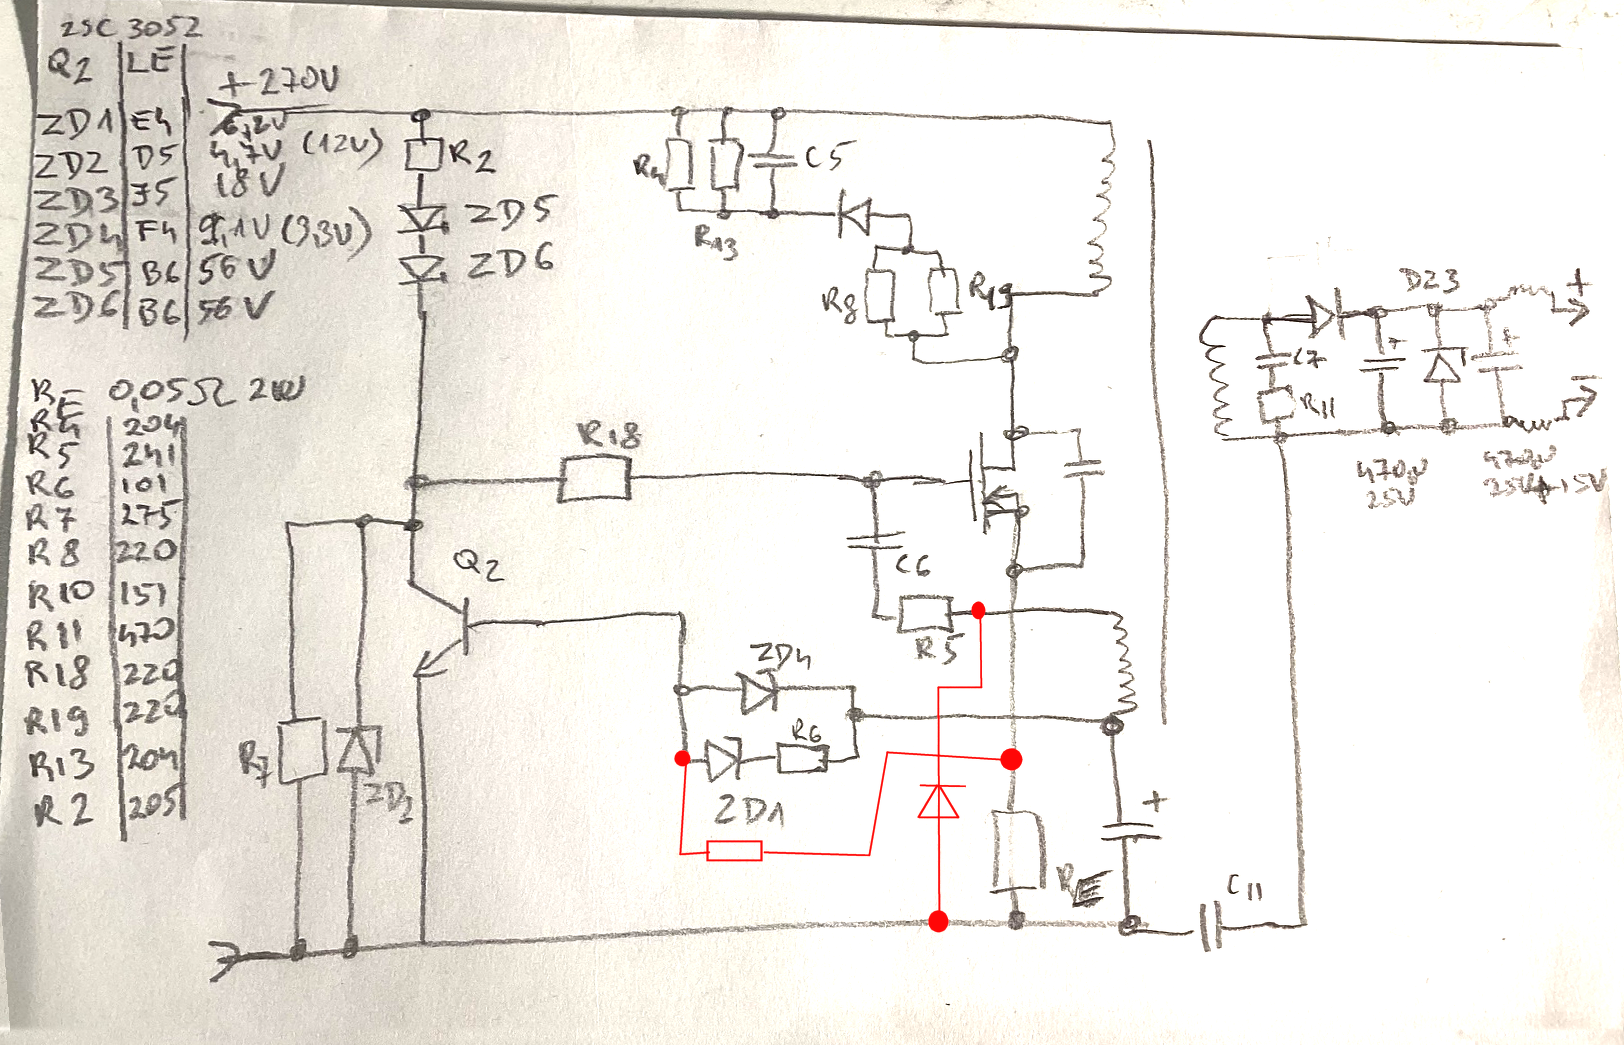 2SC 3052
Q2 LE
+270V
ZD1 E4 6,2V
ZD2 D5 4,7V (12V)
ZD3 J5 18V
ZD4 F4 9,1V (3,3V)
ZD5 B6 56V
ZD6 B6 56V
RE 0,05Ω 2W
R4 204
R5 241
R6 101
R7 275
R8 220
R10 151
R11 470
R18 220
R19 220
R13 204
R2 205
R2
ZD5
ZD6
R4
C5
R13
R8
R19
R18
C6
R5
Q2
ZD4
R6
ZD1
R7
RE
+
C11
D23
+
C7
+
+
R11
-
470µ
25V
25V
15V